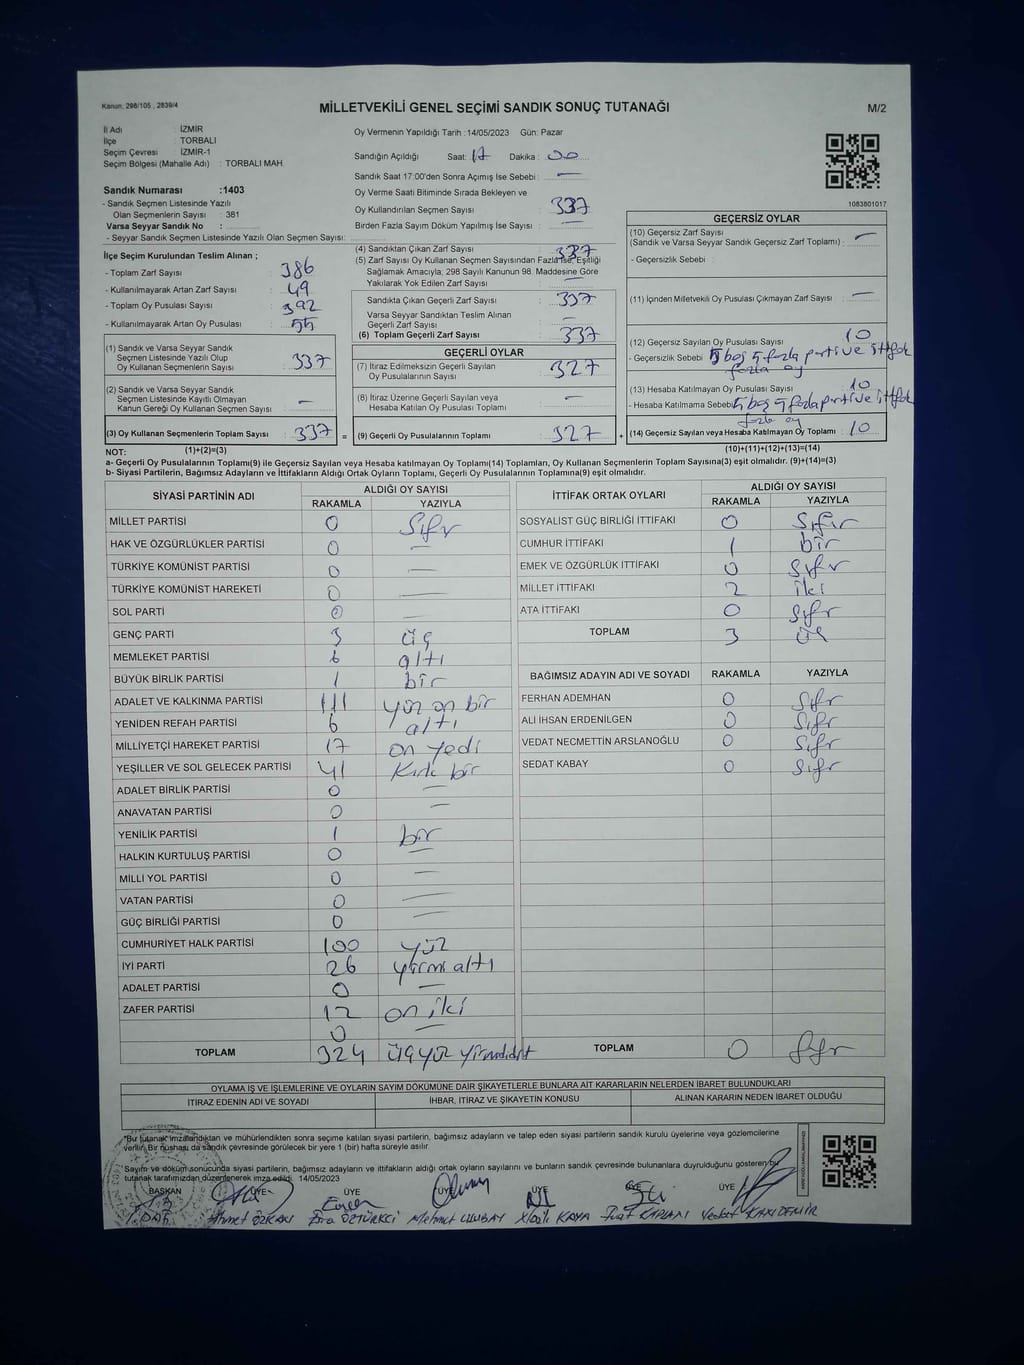 Kanun: 298/105 , 2839/4
MİLLETVEKİLİ GENEL SEÇİMİ SANDIK SONUÇ TUTANAĞI
M/2
İl Adı : İZMİR
İlçe : TORBALI
Seçim Çevresi : İZMİR-1
Seçim Bölgesi (Mahalle Adı) : TORBALI MAH.
Oy Vermenin Yapıldığı Tarih :14/05/2023 Gün: Pazar
Sandığın Açıldığı Saat: 17 Dakika : 00
Sandık Saat 17:00'den Sonra Açımış İse Sebebi : —
Oy Verme Saati Bitiminde Sırada Bekleyen ve
Oy Kullandırılan Seçmen Sayısı : 337
Birden Fazla Sayım Döküm Yapılmış İse Sayısı : —
1083801017
Sandık Numarası :1403
- Sandık Seçmen Listesinde Yazılı
Olan Seçmenlerin Sayısı : 381
Varsa Seyyar Sandık No :
- Seyyar Sandık Seçmen Listesinde Yazılı Olan Seçmen Sayısı:
İlçe Seçim Kurulundan Teslim Alınan ;
- Toplam Zarf Sayısı : 386
- Kullanılmayarak Artan Zarf Sayısı : 49
- Toplam Oy Pusulası Sayısı : 392
- Kullanılmayarak Artan Oy Pusulası : 55
(1) Sandık ve Varsa Seyyar Sandık
Seçmen Listesinde Yazılı Olup
Oy Kullanan Seçmenlerin Sayısı : 337
(2) Sandık ve Varsa Seyyar Sandık
Seçmen Listesinde Kayıtlı Olmayan
Kanun Gereği Oy Kullanan Seçmen Sayısı : —
(3) Oy Kullanan Seçmenlerin Toplam Sayısı : 337
(1)+(2)=(3)
(4) Sandıktan Çıkan Zarf Sayısı : 337
(5) Zarf Sayısı Oy Kullanan Seçmen Sayısından Fazla İse, Eşitliği
Sağlamak Amacıyla, 298 Sayılı Kanunun 98. Maddesine Göre
Yakılarak Yok Edilen Zarf Sayısı :
Sandıkta Çıkan Geçerli Zarf Sayısı : 337
Varsa Seyyar Sandıktan Teslim Alınan
Geçerli Zarf Sayısı : —
(6) Toplam Geçerli Zarf Sayısı : 337
GEÇERLİ OYLAR
(7) İtiraz Edilmeksizin Geçerli Sayılan
Oy Pusulalarının Sayısı : 327
(8) İtiraz Üzerine Geçerli Sayılan veya
Hesaba Katılan Oy Pusulası Toplamı : —
= (9) Geçerli Oy Pusulalarının Toplamı : 327 +
GEÇERSİZ OYLAR
(10) Geçersiz Zarf Sayısı
(Sandık ve Varsa Seyyar Sandık Geçersiz Zarf Toplamı) : —
- Geçersizlik Sebebi :
(11) İçinden Milletvekili Oy Pusulası Çıkmayan Zarf Sayısı : —
(12) Geçersiz Sayılan Oy Pusulası Sayısı : 10
- Geçersizlik Sebebi : 5 boş 5 fazla parti ve ittfak
fazla oy
(13) Hesaba Katılmayan Oy Pusulası Sayısı : 10
- Hesaba Katılmama Sebebi : 5 boş 5 fazla parti ve ittfak
fazla oy
(14) Geçersiz Sayılan veya Hesaba Katılmayan Oy Toplamı : 10
(10)+(11)+(12)+(13)=(14)
NOT:
a- Geçerli Oy Pusulalarının Toplamı(9) ile Geçersiz Sayılan veya Hesaba katılmayan Oy Toplamı(14) Toplamları, Oy Kullanan Seçmenlerin Toplam Sayısına(3) eşit olmalıdır. (9)+(14)=(3)
b- Siyasi Partilerin, Bağımsız Adayların ve İttifakların Aldığı Ortak Oyların Toplamı, Geçerli Oy Pusulalarının Toplamına(9) eşit olmalıdır.
SİYASİ PARTİNİN ADI ALDIĞI OY SAYISI
RAKAMLA YAZIYLA
MİLLET PARTİSİ 0 Sıfır
HAK VE ÖZGÜRLÜKLER PARTİSİ 0 —
TÜRKİYE KOMÜNİST PARTİSİ 0 —
TÜRKİYE KOMÜNİST HAREKETİ 0 —
SOL PARTİ 0 —
GENÇ PARTİ 3 üç
MEMLEKET PARTİSİ 6 altı
BÜYÜK BİRLİK PARTİSİ 1 bir
ADALET VE KALKINMA PARTİSİ 111 yüz on bir
YENİDEN REFAH PARTİSİ 6 altı
MİLLİYETÇİ HAREKET PARTİSİ 17 on yedi
YEŞİLLER VE SOL GELECEK PARTİSİ 41 Kırk bir
ADALET BİRLİK PARTİSİ 0 —
ANAVATAN PARTİSİ 0 —
YENİLİK PARTİSİ 1 bir
HALKIN KURTULUŞ PARTİSİ 0 —
MİLLİ YOL PARTİSİ 0 —
VATAN PARTİSİ 0 —
GÜÇ BİRLİĞİ PARTİSİ 0 —
CUMHURİYET HALK PARTİSİ 100 yüz
İYİ PARTİ 26 yirmi altı
ADALET PARTİSİ 0 —
ZAFER PARTİSİ 12 on iki
0 —
TOPLAM 324 üçyüz yirmidört
İTTİFAK ORTAK OYLARI ALDIĞI OY SAYISI
RAKAMLA YAZIYLA
SOSYALİST GÜÇ BİRLİĞİ İTTİFAKI 0 Sıfır
CUMHUR İTTİFAKI 1 bir
EMEK VE ÖZGÜRLÜK İTTİFAKI 0 Sıfır
MİLLET İTTİFAKI 2 iki
ATA İTTİFAKI 0 Sıfır
TOPLAM 3 üç
BAĞIMSIZ ADAYIN ADI VE SOYADI RAKAMLA YAZIYLA
FERHAN ADEMHAN 0 Sıfır
ALİ İHSAN ERDENİLGEN 0 Sıfır
VEDAT NECMETTİN ARSLANOĞLU 0 Sıfır
SEDAT KABAY 0 Sıfır
TOPLAM 0 Sıfır
OYLAMA İŞ VE İŞLEMLERİNE VE OYLARIN SAYIM DÖKÜMÜNE DAİR ŞİKAYETLERLE BUNLARA AİT KARARLARIN NELERDEN İBARET BULUNDUKLARI
İTİRAZ EDENİN ADI VE SOYADI İHBAR, İTİRAZ VE ŞİKAYETİN KONUSU ALINAN KARARIN NEDEN İBARET OLDUĞU
"Bu tutanak" imzalandıktan ve mühürlendikten sonra seçime katılan siyasi partilerin, bağımsız adayların ve talep eden siyasi partilerin sandık kurulu üyelerine veya gözlemcilerine
verilir. Bir nüshası da sandık çevresinde görülecek bir yere 1 (bir) hafta süreyle asılır.
Sayım ve döküm sonucunda siyasi partilerin, bağımsız adayların ve ittifakların aldığı ortak oyların sayılarını ve bunların sandık çevresinde bulunanlara duyrulduğunu gösteren bu
tutanak tarafımızdan düzenlenerek imza edildi. 14/05/2023
BAŞKAN ÜYE ÜYE ÜYE ÜYE ÜYE ÜYE
Ahmet ÖZKAN Esra ÖZTÜRKCİ Mehmet ULUBAY Halil KAYA Fuat KAPLAN Vedat KAKIDEMİR